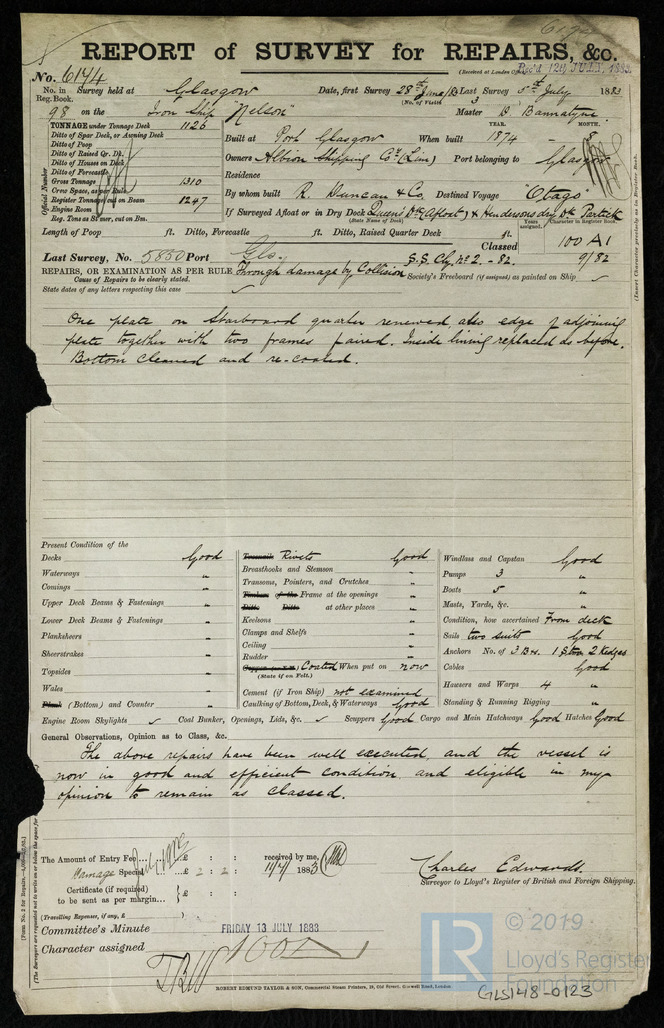 REPORT of SURVEY for REPAIRS, &c.
(Received at London Office Rec'd 12th JULY 1883
No. 6144
No. in Reg. Book. Survey held at Glasgow Date, first Survey 28th June /83 Last Survey 5th July 1883
(No. of Visits 3
98 on the Iron Ship "Nelson" Master D Bannatyne
TONNAGE under Tonnage Deck 1126
Ditto of Spar Deck, or Awning Deck
Ditto of Poop
Ditto of Raised Qr. Dk.
Ditto of House on Deck
Ditto of Forecastle
Gross Tonnage 1310
Crew Space, as per Rule
Register Tonnage cut on Beam 1247
Engine Room
Reg. Tons as Str. cut on Bm.
Official Number
YEAR. MONTH.
Built at Port Glasgow When built 1874 - 8
Owners Albion Shipping Coy (Lim) Port belonging to Glasgow
Residence
By whom built R. Duncan & Co. Destined Voyage "Otago"
If Surveyed Afloat or in Dry Dock Queen's Dk (Afloat) & Hendersons dry Dk Partick
(State Name of Dock)
Length of Poop ft. Ditto, Forecastle ft. Ditto, Raised Quarter Deck ft.
Years assigned. Character in Register Book.
Classed 100 A1
9/82
Last Survey, No. 5850 Port Gls. S.S. Cly. No 2 - 82.
REPAIRS, OR EXAMINATION AS PER RULE Through damage by Collision Society's Freeboard (if assigned) as painted on Ship
Cause of Repairs to be clearly stated.
State dates of any letters respecting this case
(Insert Character precisely as in Register Book.
One plate on Starboard quarter renewed also edge of adjoining
plate together with two frames faired. Inside lining replaced as before.
Bottom cleaned and re-coated.
Present Condition of the
Decks Good
Waterways "
Comings "
Upper Deck Beams & Fastenings "
Lower Deck Beams & Fastenings "
Planksheers "
Sheerstrakes "
Topsides "
Wales "
Plank (Bottom) and Counter "
Treenails Rivets Good
Breasthooks and Stemson "
Transoms, Pointers, and Crutches "
Timbers of the Frame at the openings "
Ditto Ditto at other places "
Keelsons "
Clamps and Shelfs "
Ceiling "
Rudder "
Coated When put on now
(State if on Felt.)
Cement (if Iron Ship) not examined
Caulking of Bottom, Deck, & Waterways Good
Windlass and Capstan Good
Pumps 3 "
Boats 5 "
Masts, Yards, &c. "
Condition, how ascertained From deck
Sails two suits Good
Anchors No. of 3 Brs. 1 Strm 2 Kedges
Cables Good
Hawsers and Warps 4 "
Standing & Running Rigging "
Engine Room Skylights Coal Bunker, Openings, Lids, &c. Scuppers Good Cargo and Main Hatchways Good Hatches Good
General Observations, Opinion as to Class, &c.
The above repairs have been well executed, and the vessel is
now in good and efficient condition and eligible in my
opinion to remain as classed.
The Amount of Entry Fee £ : : received by me,
Damage Special £ 2 : 2 : 11/7 1883
Certificate (if required) to be sent as per margin £ : :
(Travelling Expenses, if any, £ )
Charles Edwards.
Surveyor to Lloyd's Register of British and Foreign Shipping.
Committee's Minute FRIDAY 13 JULY 1883
Character assigned 100A
(Form No. 2 for Repairs.
(The Surveyors are requested not to write on or below the space for
ROBERT EDMUND TAYLOR & SON, Commercial Steam Printers, 19, Old Street, Goswell Road, London.
LR © 2019
Lloyd's Register
Foundation
GLS148-0123